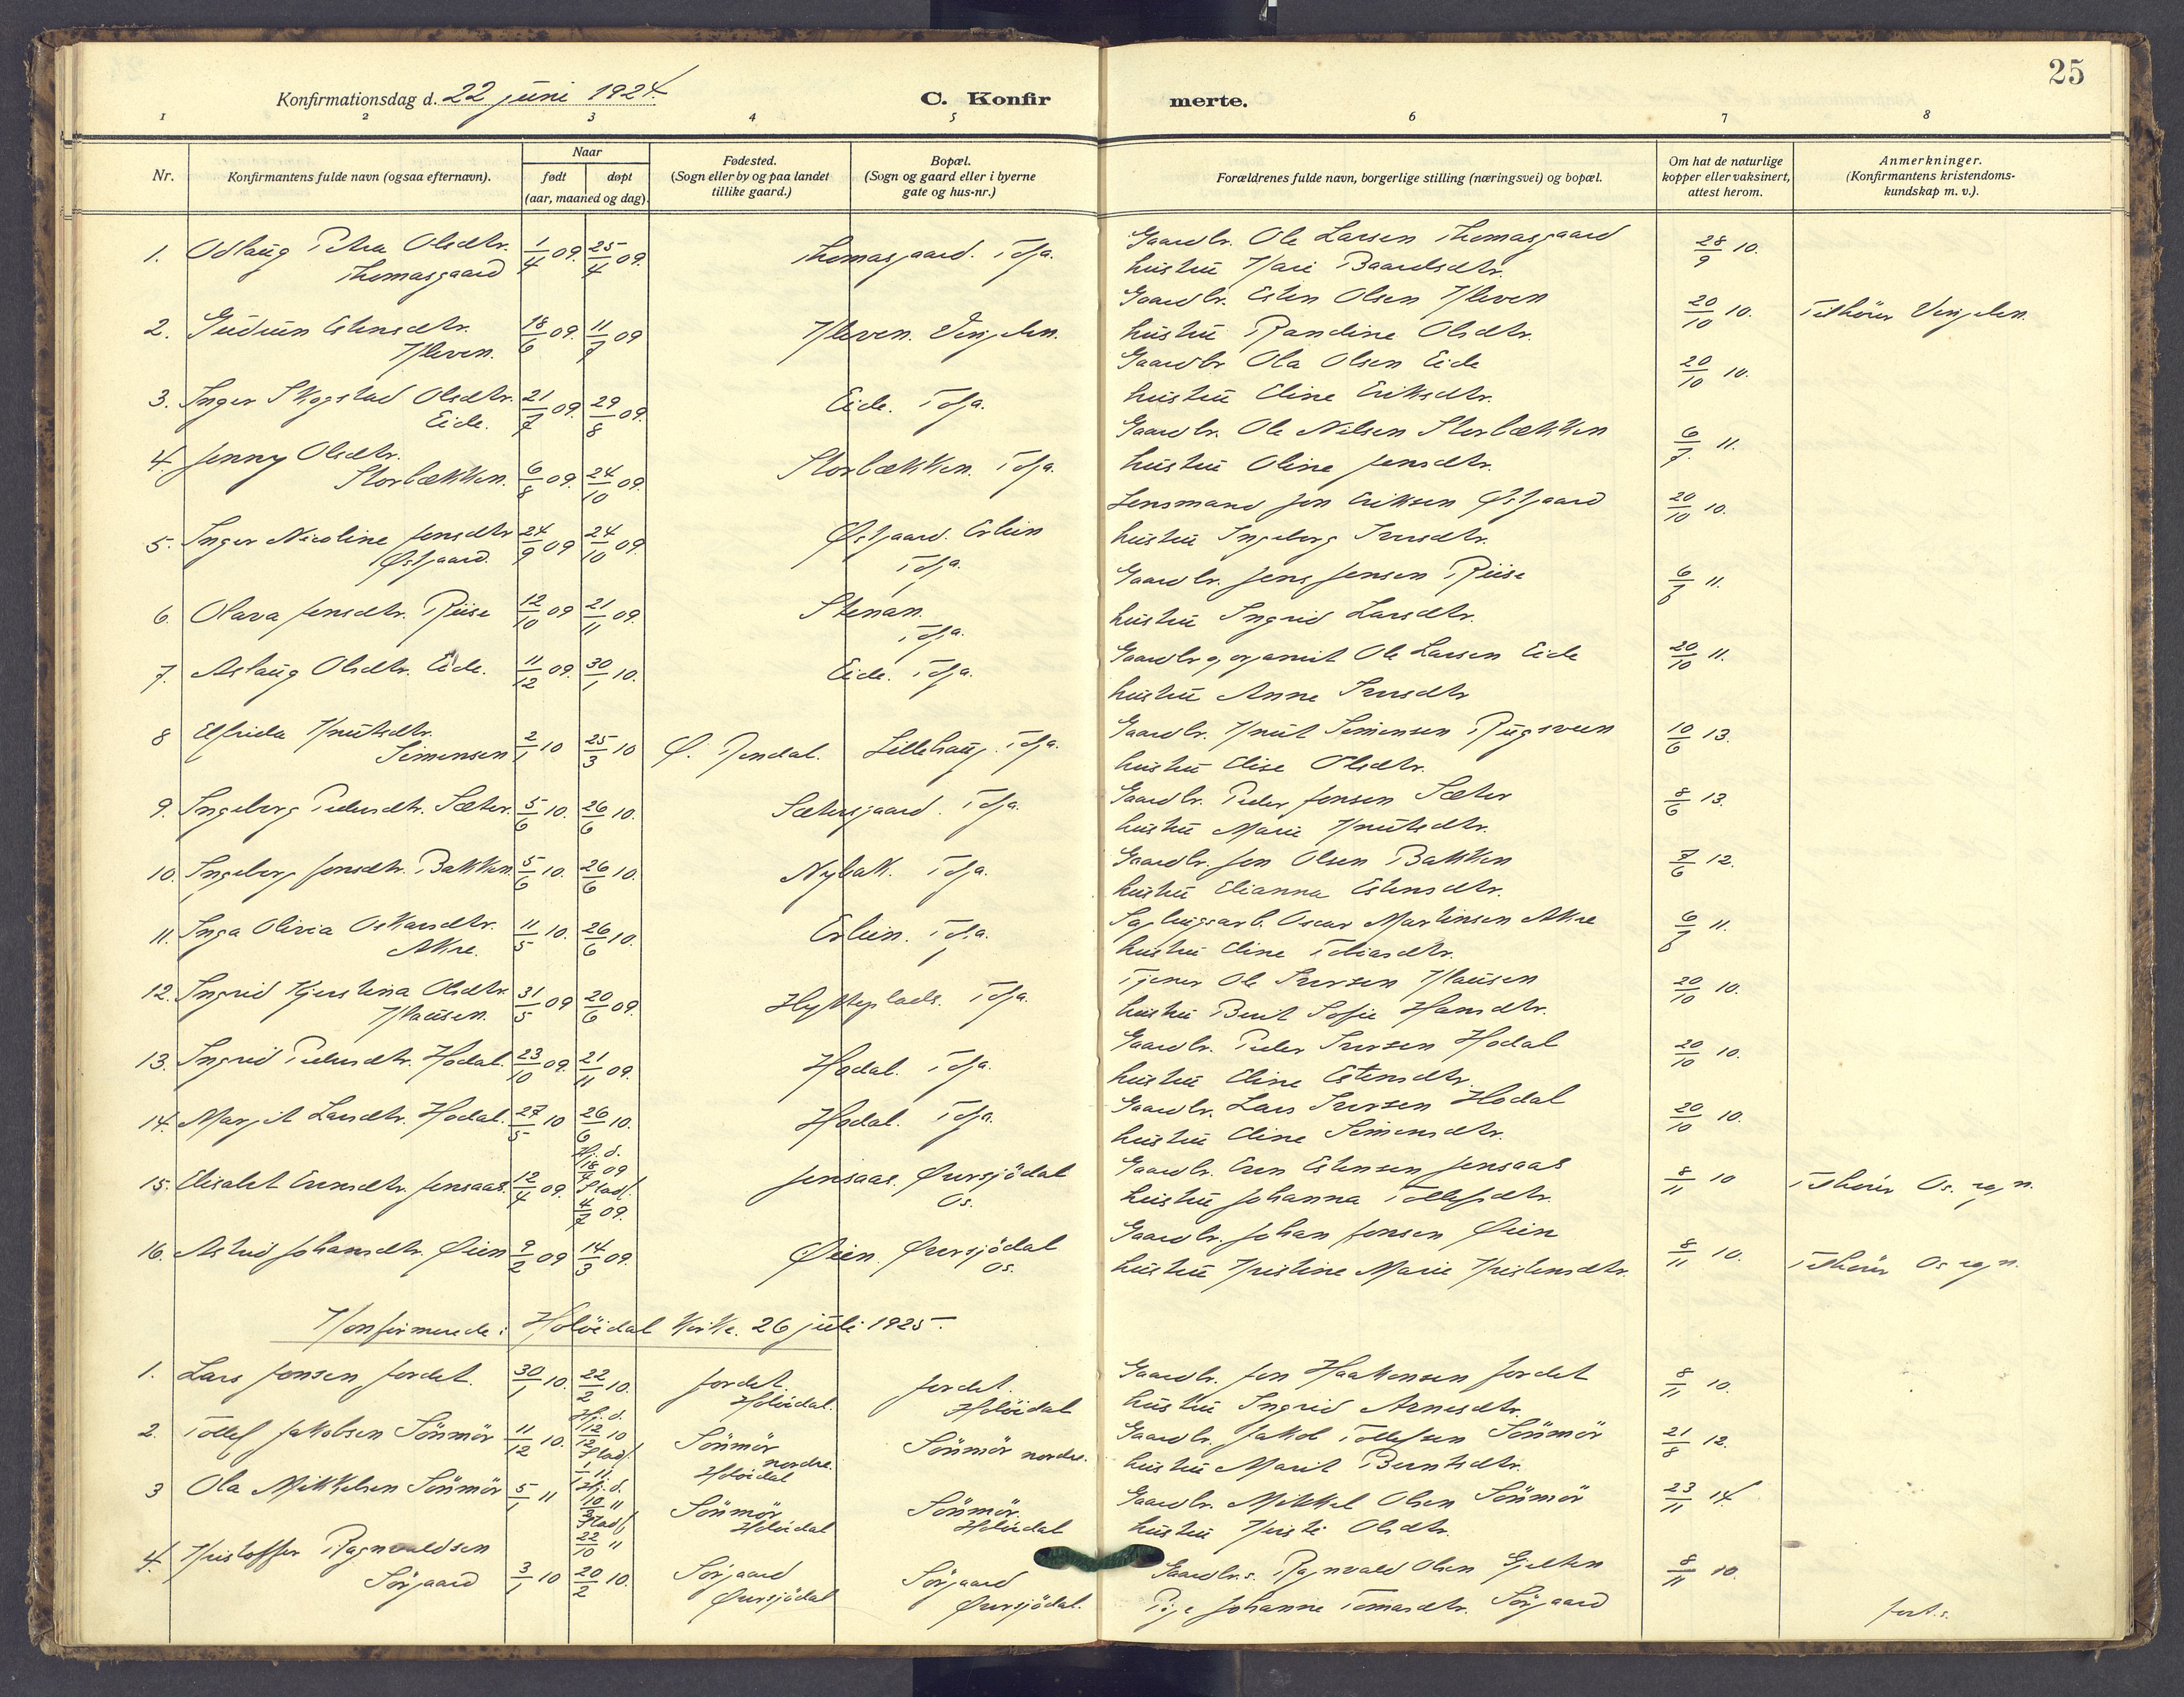 25
Konfirmationsdag d. 22 juni 1924.
C. Konfirmerte.
1 2 3 4 5 6 7 8
Nr.
Konfirmantens fulde navn (ogsaa efternavn).
Naar
født døpt
(aar, maaned og dag).
Fødested.
(Sogn eller by og paa landet
tillike gaard.)
Bopæl.
(Sogn og gaard eller i byerne
gate og hus-nr.)
Forældrenes fulde navn, borgerlige stilling (næringsvei) og bopæl.
Om hat de naturlige
kopper eller vaksinert,
attest herom.
Anmerkninger.
(Konfirmantens kristendoms-
kundskap m. v.).
1. Odlaug Petra Olsdtr. 1/4 09. 25/4 09. Thomasgaard. Tolga. Gaardbr. Ole Larsen Thomasgaard 28/9 10.
Thomasgaard hustru Kari Baardsdtr.
2. Gudrun Estensdtr. 18/6 09. 11/7 09 Kleven. Vingelen. Gaardbr. Esten Olsen Kleven 20/10 10. Tilhører Vingelen.
Kleven. hustru Randine Olsdtr.
3. Inger Skogstad Olsdtr. 21/7 09. 29/8 09. Eide. Tolga. Gaardbr Ola Olsen Eide 20/10 10.
Eide. hustru Eline Eriksdtr.
4. Jenny Olsdtr. Gaardbr. Ole Nilsen Storbækken 6/7 11.
Storbækken. 6/8 09. 24/10 09. Storbækken. Tolga. hustru Oline Jensdtr.
5. Inger Nicoline Jonsdtr 24/9 09 24/10 09. Østgaard. Erlien Lensmand Jon Eriksen Østgaard 20/10 10.
Østgaard. Tolga. hustru Ingeborg Iversdtr.
6. Olava Jensdtr. Riise 12/10 09 21/11 09. Stenan. Gaardbr. Jens Jensen Riise 6/8 11.
Tolga. hustru Ingrid Larsdtr.
7. Aslaug Olsdtr. Eide. 11/12 09. 30/1 10. Eide. Tolga. Gaardbr og organist Ole Larsen Eide 20/10 11.
hustru Anne Iversdtr
8 Elfrida Knutsdtr. Gaardbr. Knut Simensen Rugsveen 10/6 13.
Simensen 2/1 10 25/3 10 Ø. Rendal. Lillehaug. Tolga. hustru Elise Olsdtr.
9. Ingeborg Pedersdtr. Sæter. 5/6 10. 26/6 10. Sætersgaard. Tolga. Gaardbr. Peder Jonsen Sæter 8/6 13.
hustru Marie Knutsdtr.
10. Ingeborg Jonsdtr. Bakken 5/6 10. 26/6 10. Nybak. Tolga. Gaardbr. Jon Olsen Bakken 7/6 12.
hustru Elianna Estensdtr.
11. Inga Olivia Oskarsdtr. 11/5 10. 26/6 10. Erlien. Tolga. Sagbrugsarb. Oscar Martinsen Akre 6/8 11.
Akre. hustru Eline Tobiasdtr.
12. Ingrid Kjerstina Olsdtr. 31/5 09 20/6 09. Hytteplads. Tolga. Tjener Ole Iversen Klausen 20/10 10.
Klausen. hustru Berit Sofie Hansdtr.
13. Ingrid Pedersdtr. Hodal. 23/10 09. 21/11 09. Hodal. Tolga. Gaardbr. Peder Iversen Hodal 20/10 10.
hustru Eline Estensdtr.
14. Margit Larsdtr. Hodal. 27/5 10 26/6 10. Hodal. Tolga. Gaardbr. Lars Iversen Hodal 20/10 10.
hustru Eline Simensdtr.
15. Elisabet Evensdtr. Jensaas. 12/4 09. Hj. d. 18/4 09 Stadf. 4/7 09. Jensaas. Øversjødal Gaardbr. Even Estensen Jensaas 8/11 10 Tilhører Os. sogn.
Os. hustru Johanna Tollefsdtr.
16. Astrid Johansdtr. Øien 9/2 09 14/3 09. Øien. Øversjødal Gaardbr. Johan Jonsen Øien 8/11 10. Tilhører Os sogn.
Os. hustru Kristine Marie Kristensdtr.
Konfirmerede i Holøidal kirke. 26 juli 1925.
1. Lars Jonsen Jordet. 30/1 10. 22/2 10. Jordet. Jordet. Gaardbr. Jon Haakensen Jordet 8/11 10.
Holøidal. Holøidal hustru Ingrid Arnesdtr.
2. Tollef Jakobsen Sönmör 11/12 10. Hj. d. 12/12 10 Stadf. 1/1 11. Sönmör nordre. Sönmör nordre. Gaardbr. Jakob Tollefsen Sönmör 21/8 12.
Holøidal hustru Marit Berntsdtr.
3 Ola Mikkelsen Sönmör 5/1 11 Hj. d. 10/9 11 Stadf. 22/10 11 Sönmör Sönmör. Gaardbr. Mikkel Olsen Sönmör 23/11 14
Holøidal Holøidal hustru Kristi Olsdtr.
4. Kristoffer Ragnvaldsen
Sörgaard 3/1 10 20/2 10. Sörgaard Sörgaard Gaardbr.s. Ragnvald Olsen Gjelten 8/11 10.
Øversjødal Øversjødal. Pige Johanne Tomasdtr. Sörgaard
forts.